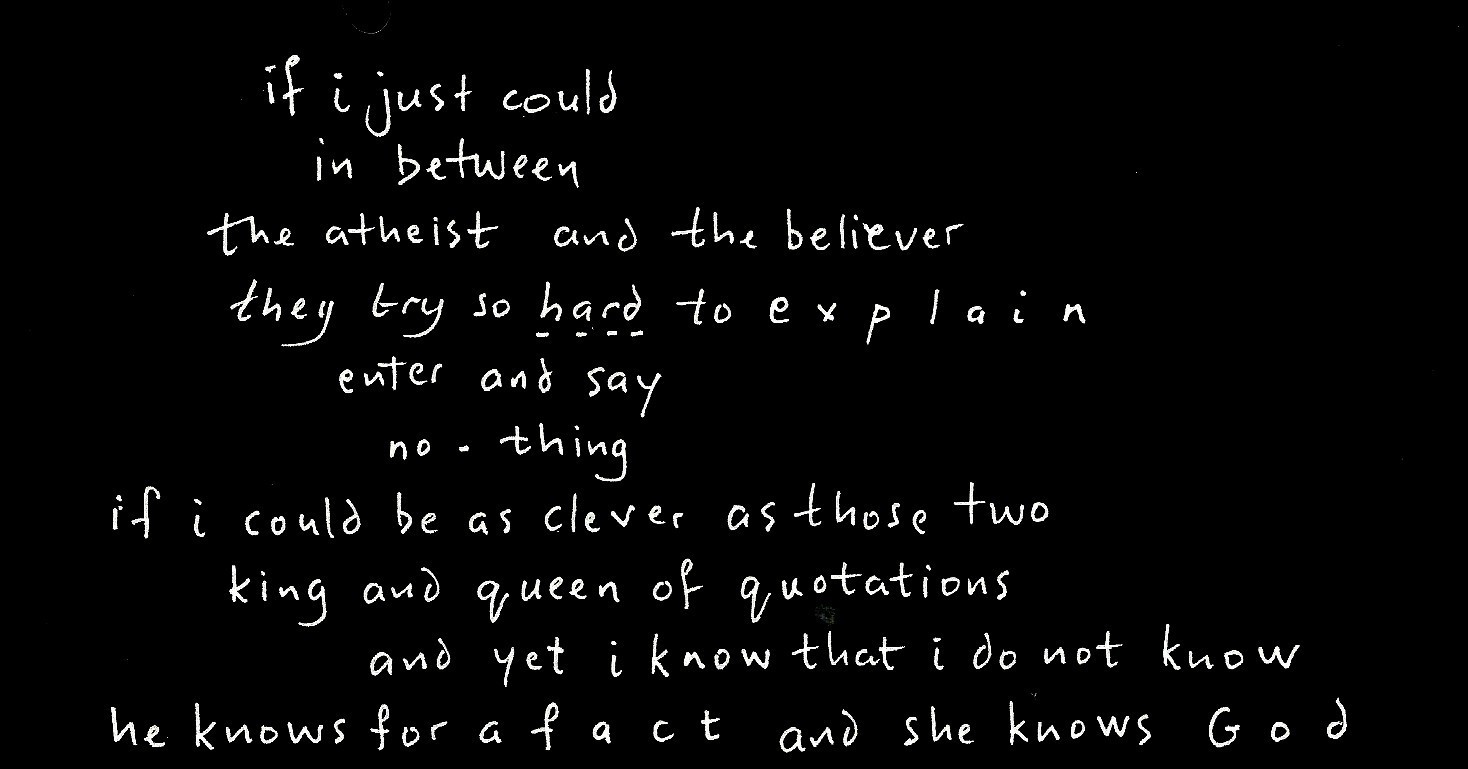 if i just could
in between
the atheist and the believer
they try so hard to e x p l a i n
enter and say
no - thing
if i could be as clever as those two
king and queen of quotations
and yet i know that i do not know
he knows for a f a c t and she knows G o d